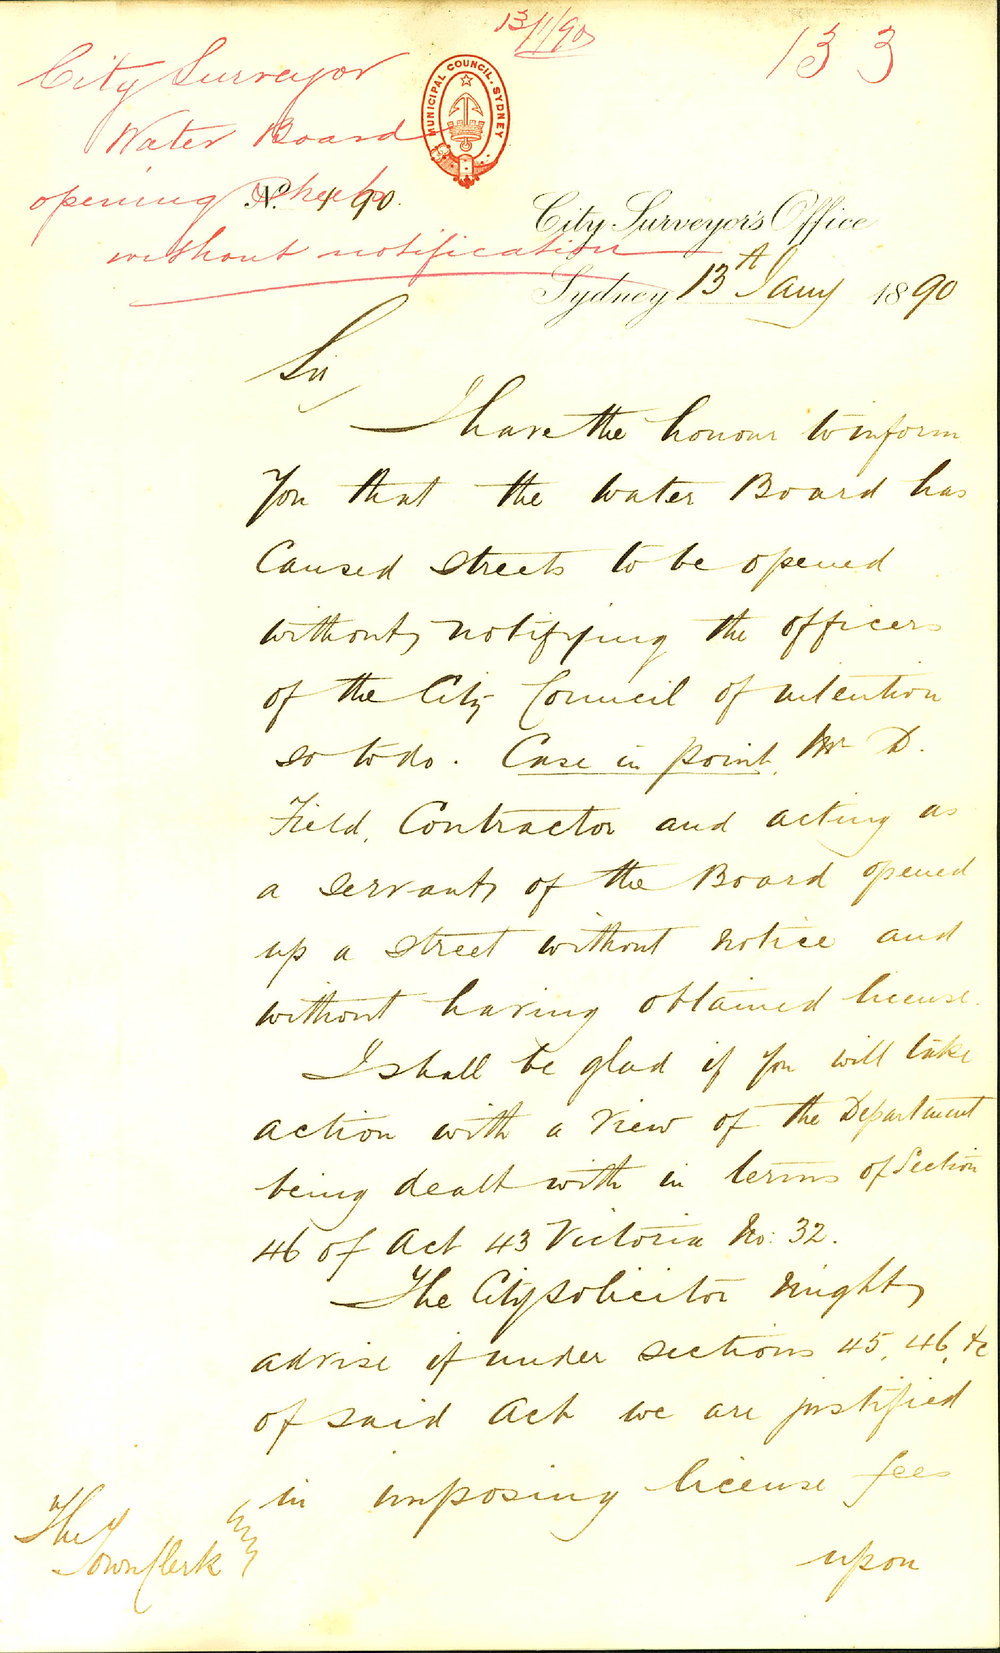 13/1/90
133
City Surveyor
Water Board
opening Streets
without notification
MUNICIPAL COUNCIL. SYDNEY
No. 4 90.
City Surveyor's Office
Sydney 13th Jany 1890
Sir,
I have the honour to inform
you that the Water Board has
Caused streets to be opened
without notifying the officers
of the City Council of intention
so to do. Case in point, Mr D.
Field, Contractor and acting as
a servant of the Board opened
up a street without notice and
without having obtained license.
I shall be glad if you will take
action with a view of the Department
being dealt with in terms of Section
46 of Act 43 Victoria No: 32.
The City Solicitor might
advise if under sections 45, 46, &c
of said Act we are justified
in imposing license fees
upon
The
Town Clerk